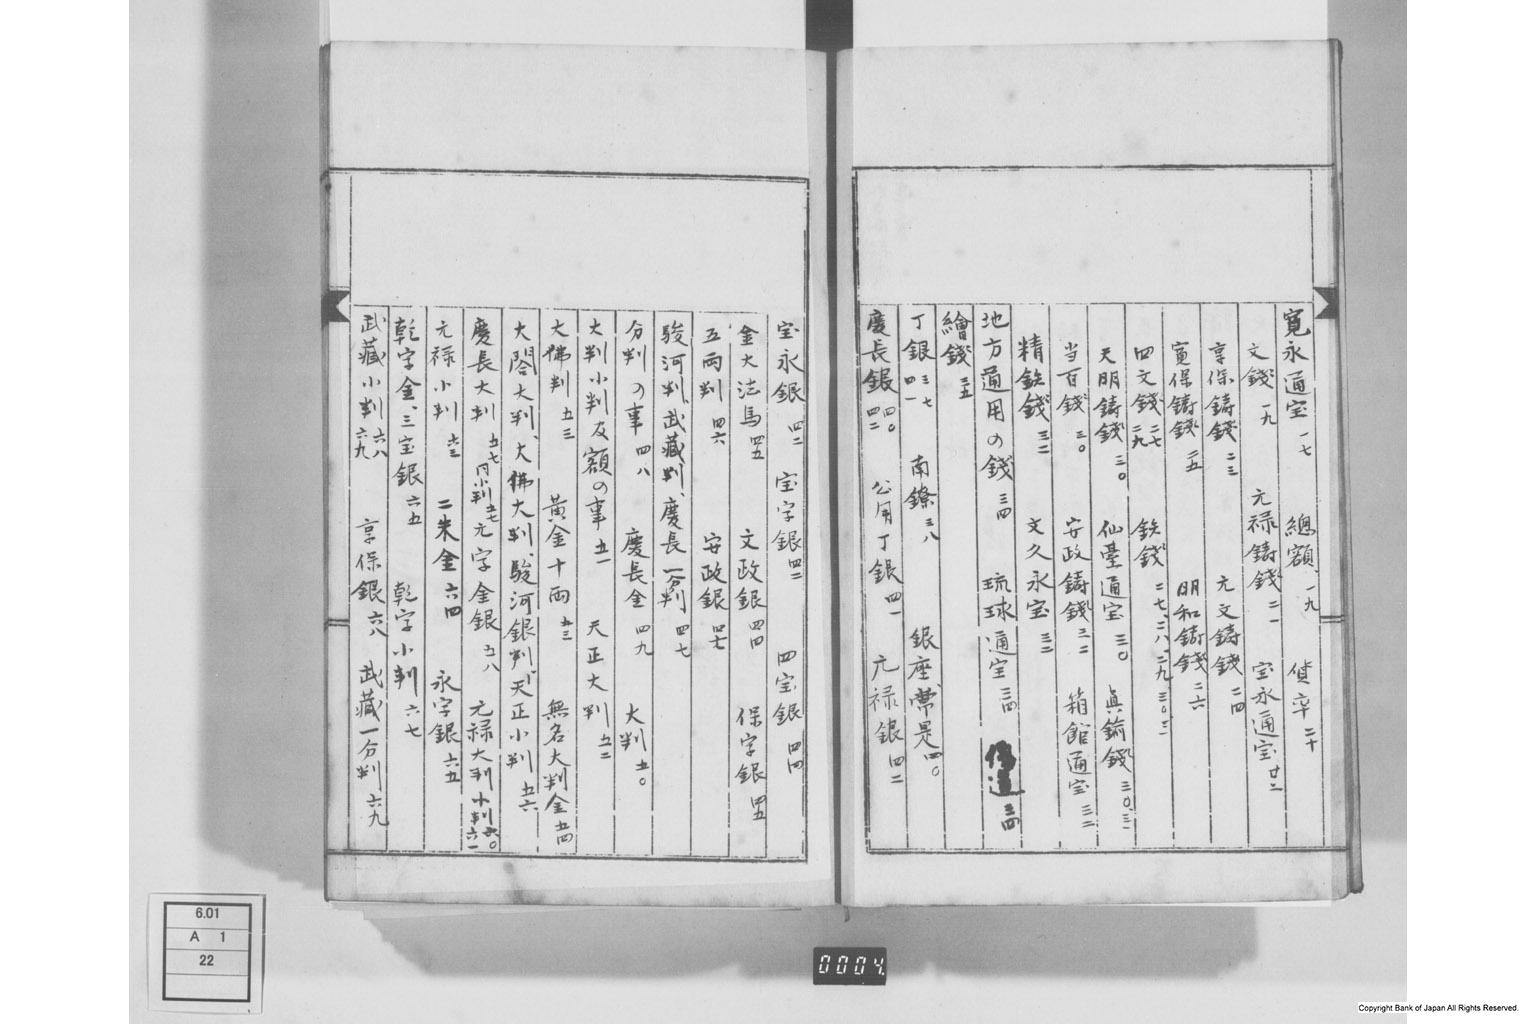 寛永通宝 一七 總額、一九 貨率 二十
文錢 一九 元禄鋳錢 二一 宝永通宝 廿二
享保鋳錢 二三 元文鋳錢 二四
寛保鋳錢 二五 明和鋳錢 二六
四文錢 二七 二九 鉄錢 二七、二八、二九、三〇、三一
天明鋳錢 三〇 仙臺通宝 三〇 眞鍮錢 三〇、三一
当百錢 三〇 安政鋳錢 三二 箱館通宝 三二
精鉄錢 三二 文久永宝 三二
地方通用の錢 三四 琉球通宝 三四 三四
繪錢 三五
丁銀 三七 四一 南鐐 三八 銀座常是 四〇
慶長銀 四〇 四二 公用丁銀 四一 元禄銀 四二
宝永銀 四二 宝字銀 四二 四宝銀 四四
金大法馬 四五 文政銀 四四 保字銀 四五
五両判 四六 安政銀 四七
駿河判、武藏判、慶長一分判 四七
分判の事 四八 慶長金 四九 大判 五〇
大判小判友額の事 五一 天正大判 五二
大佛判 五三 黄金十両 五三 無名大判金 五四
大閤大判、大佛大判、駿河銀判、天正小判 五六
慶長大判 五七 同小判 五七 元字金銀 五八 元禄大判 小判 六〇 六一
元禄小判 六三 二朱金 六四 永字銀 六五
乾字金、三宝銀 六五 乾字小判 六七
武藏小判 六八 六九 享保銀 六八 武藏一分判 六九
6.01
A 1
22
0004
Copyright Bank of Japan All Rights Reserved.